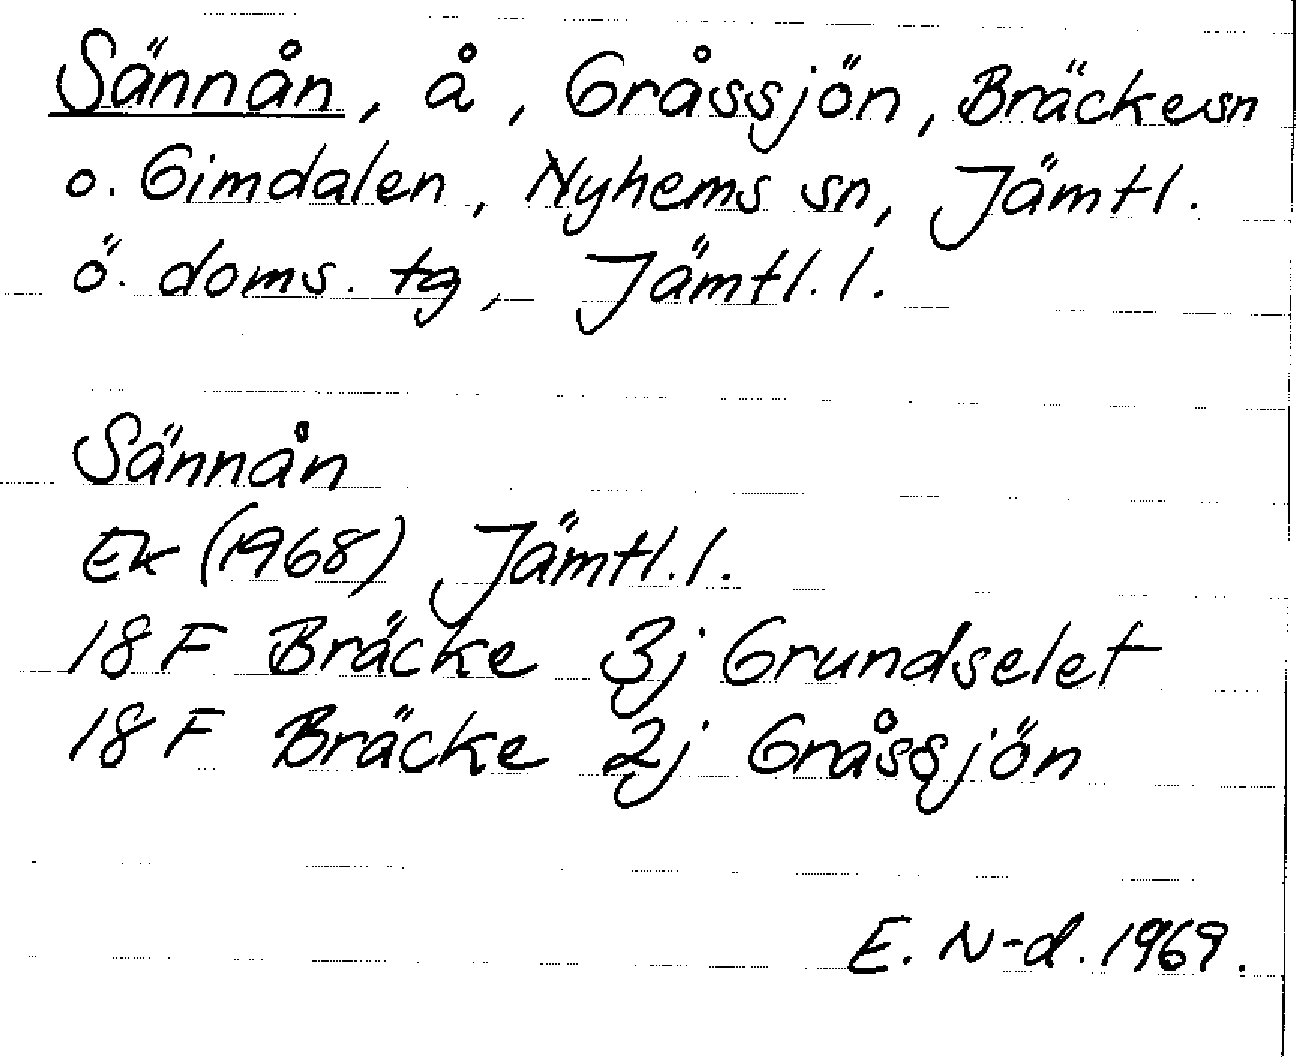 Sännån, å, Gråssjön, Bräcke sn
o. Gimdalen, Nyhems sn, Jämtl.
ö. doms. tg, Jämtl. l.
Sännån
Ek (1968) Jämtl. l.
18 F Bräcke 3j Grundselet
18 F Bräcke 2j Gråssjön
E. N-d. 1969.